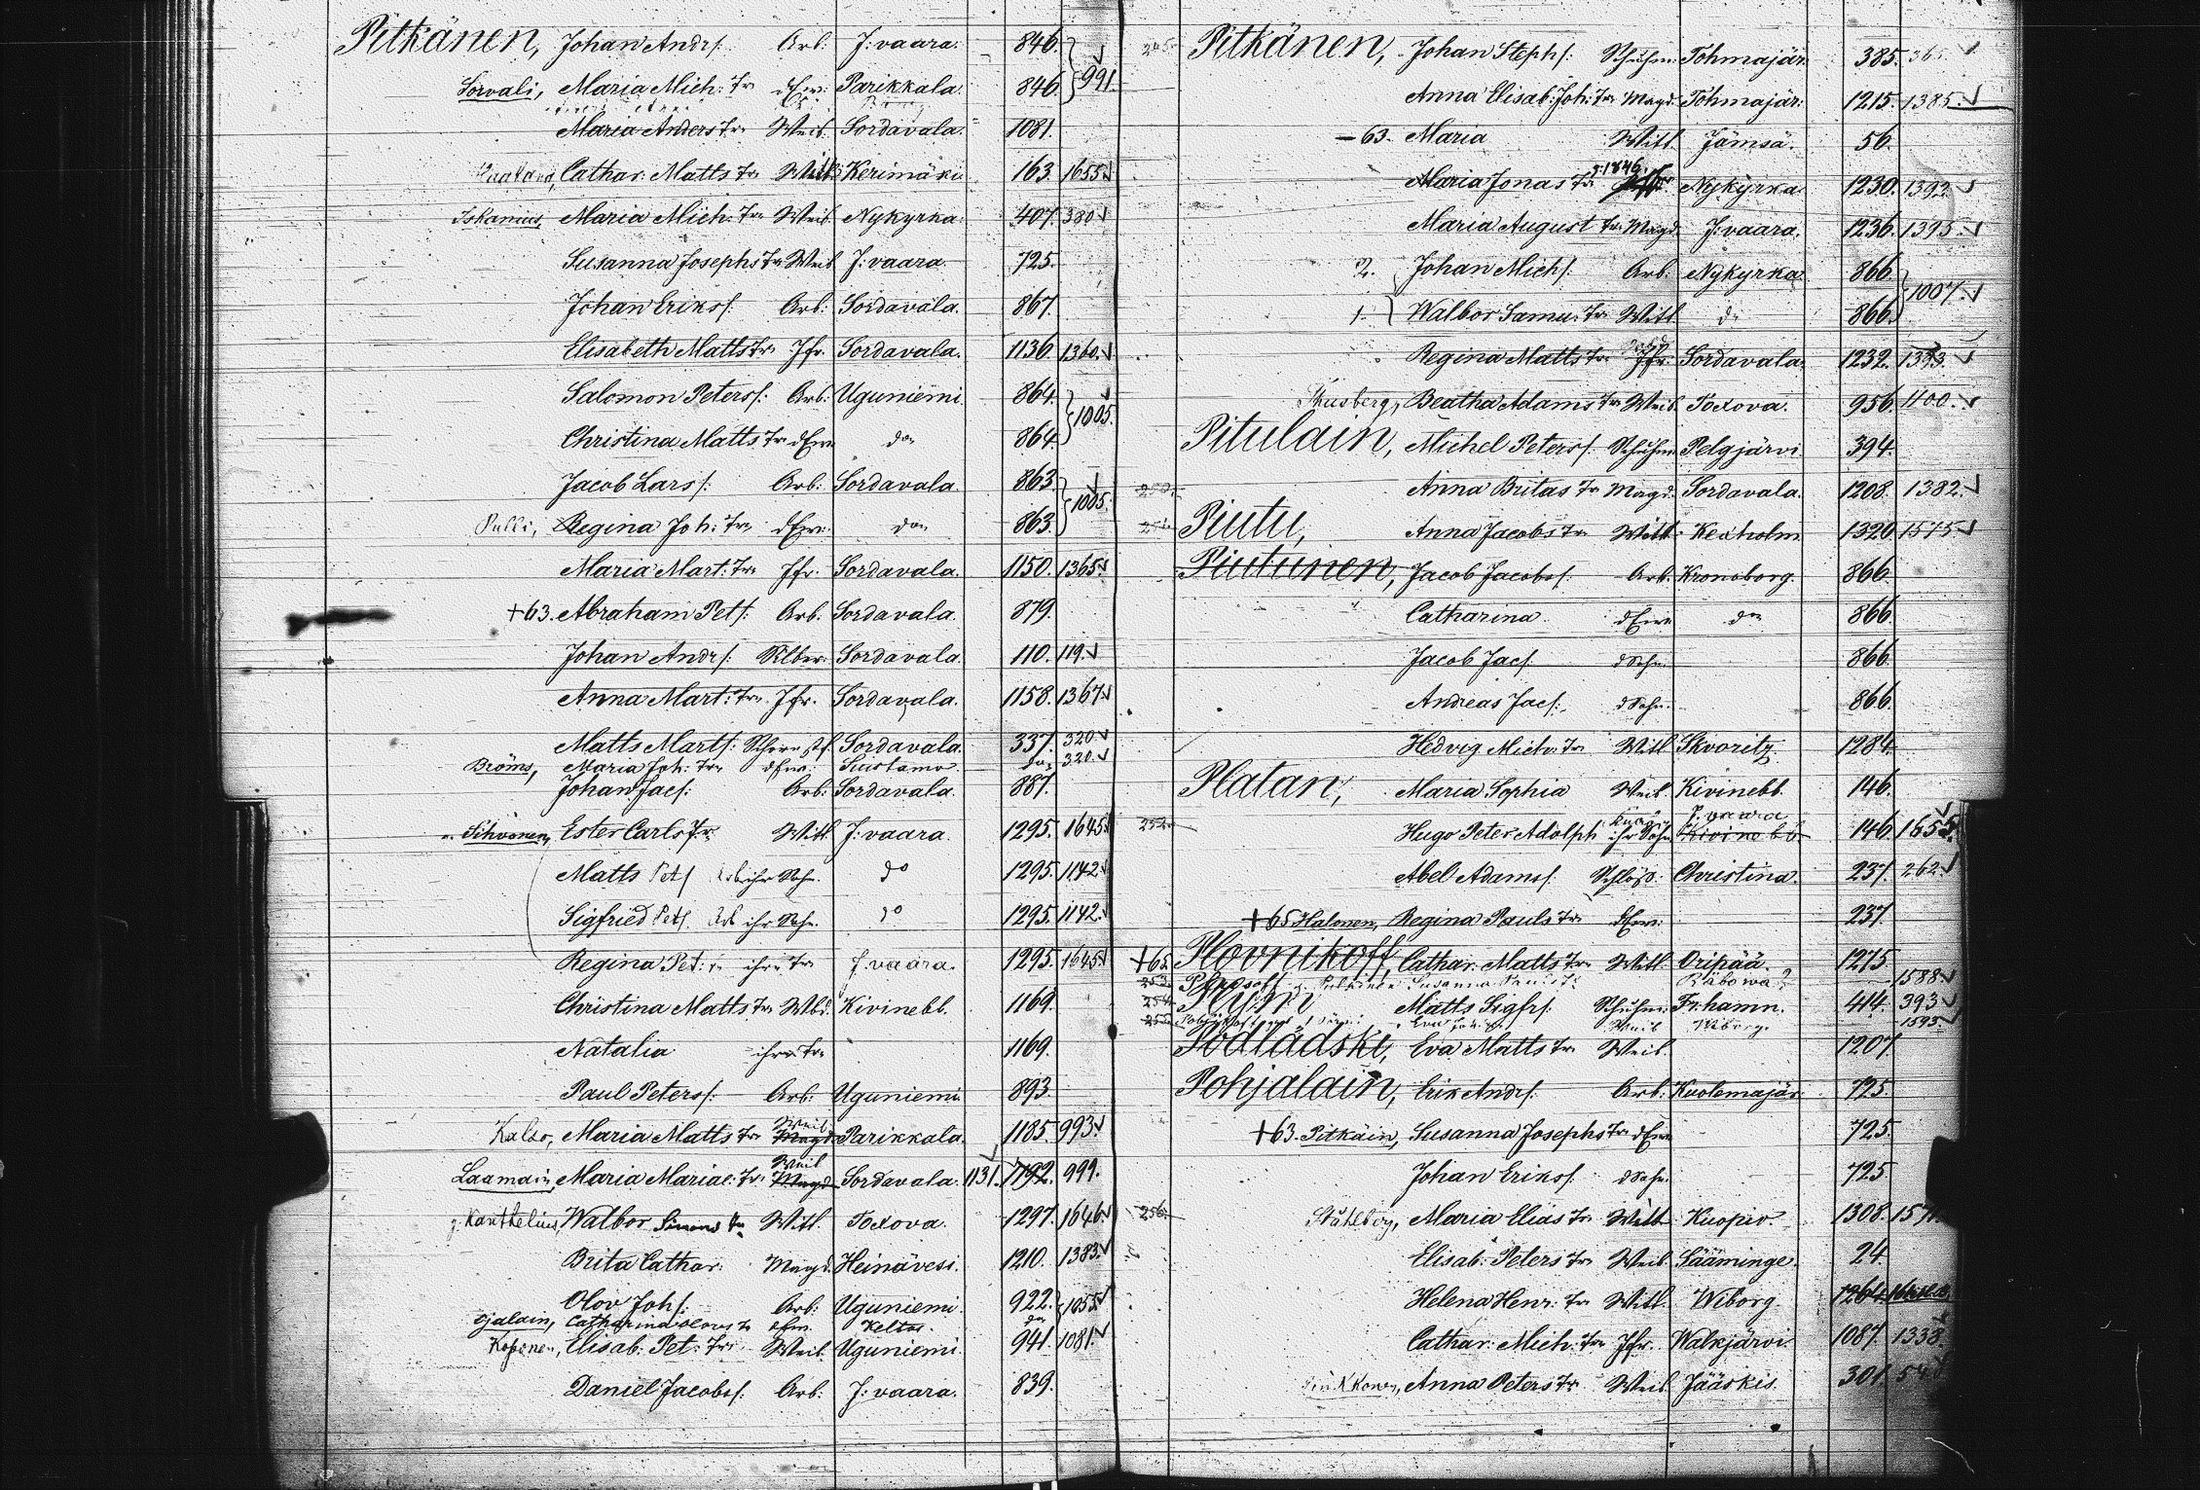 Pitkänen, Johan Andrs/: Arb: J:vaara. 846. 991
Sorvali, Maria Mich: Tr. dErw: Parikkala. 846.
Maria Anders Tr. Weib. Sordavala. 1081.
Cathar: Matts Tr. Witt: Kerimäki 163. 1655
Iskanius, Maria Mich: Tr. Weib. Nykyrka. 407. 380
Susanna Josephs Tr. Weib J:vaara. 725.
Johan Eriks/: Arb: Sordavala. 867.
Elisabeth Matts Tr. Jfr. Sordavala. 1136. 1360.
Salomon Peters/: Arb: Uguniemi. 864. 1005.
Christina Matts Tr. dErw do 864.
Jacob Lars/: Arb: Sordavala. 863. 1005.
Pulli, Regina Joh: Tr. dErw: do 863.
Maria Mart: Tr. Jfr. Sordavala. 1150. 1365.
+63. Abraham Pet/: Arb. Sordavala. 879.
Johan Andrs/: Sordavala. 110. 119.
Anna Mart: Tr. Jfr. Sordavala. 1158. 1367
Matts Mart/: Sordavala. 337. 320
Bröms, Maria Joh: Tr. dErw: Suistamo. do 320.
Johan Jac/: Arb: Sordavala. 887.
Sihvonen, Ester Carls Tr. Witt. J:vaara. 1295. 1645
Matts Pet/ Arb ihr Sohn. do 1295. 1142
Sigfried Pet/. Arb ihr Sohn. do 1295. 1142.
Regina Pet: Tr. ihre Tr. J:vaara. 1295. 1645
Christina Matts Tr. Wbd. Kivinebb. 1169.
Natalia ihre Tr. 1169.
Paul Peters/: Arb: Uguniemi. 893.
Kalso, Maria Matts Tr. Weib Magd Parikkala. 1185. 993
Laamain, Maria Mariae: Tr. Weib Magd Sordavala. 1131. 1192. 999.
g. Kanthelius, Walbor Simons Tr. Witt. Toxova. 1297. 1646
Brita Cathar: Magd. Heinävesi. 1210. 1383.
Olov Joh/: Arb: Uguniemi. 922. 1055
Catharina Olovs Tr. dErw. Keltos. do
Koponen, Elisab: Pet: Tr. Weib. Uguniemi. 941. 1081.
Daniel Jacobs/. Arb: J:vaara. 839.
245. Pitkänen, Johan Steph/: Schuhm: Tohmajär: 385. 365.
Anna Elisab: Joh: Tr. Magd. Tohmajär: 1215. 1385.
-63. Maria Witt. Jämsä. 56.
Maria Jonas Tr. g: 1846. Nykyrka 1230. 1392.
Maria August Tr. Magd. J:vaara. 1236. 1395.
2. Johan Mich/: Arb: Nykyrka. 866. 1007.
1. Walbor Samu: Tr. Witt do 866.
Regina Matts Tr. Jfr. Sordavala. 1232. 1393.
Beatha Adams Tr. Weib. Toxova. 956. 1100.
Pitulain, Michel Peters/: Schuhm Pelgjärvi 394.
Anna Britas Tr. Magd. Sordavala. 1208. 1382.
Piutu, Anna Jacobs Tr. Witt. Kexholm. 1320. 1575
Piutunen, Jacob Jacobs/: Arb. Kronoborg. 866.
Catharina. dErw do 866.
Jacob Jac/. dSohn. 866.
Andreas Jac/: dSohn. 866.
Hedvig Mich: Tr. Witt. Skvoritz. 1284.
Platan, Maria Sophia Weib. Kivinebb. 146.
252. Hugo Peter Adolph ihr Sohn J:vaara Kivinebb. 146. 1655.
Abel Adams/: Christina. 237. 262
+65 Halonen, Regina Pauls Tr. dErw: 237
+65. Plovnikoff, Cathar: Matts Tr. Witt. Oripää. 1275
Susanna 1588
Matts Sigfr/: Schuhm: Fr:hamn. 414. 393
Weib Wiborg. 1593.
Podladski, Eva Matts Tr. Weib. 1207.
Pohjalain, Erik Andrs/: Arb: Kuolemajär. 725.
+63. Pitkäin, Susanna Josephs Tr. dErw 725.
Johan Eriks/: dSohn. 725.
256. Stahlberg, Maria Elias Tr. Witt. Kuopio. 1308.
Elisab: Peters Tr. Weib. Sääminge. 24.
Helena Henr: Tr. Witt. Wiborg. 1264.
Cathar: Mich: Tr. Jfr. Walkjärvi. 1087. 1338.
Anna Peters Tr. Weib. Jääskis. 301.